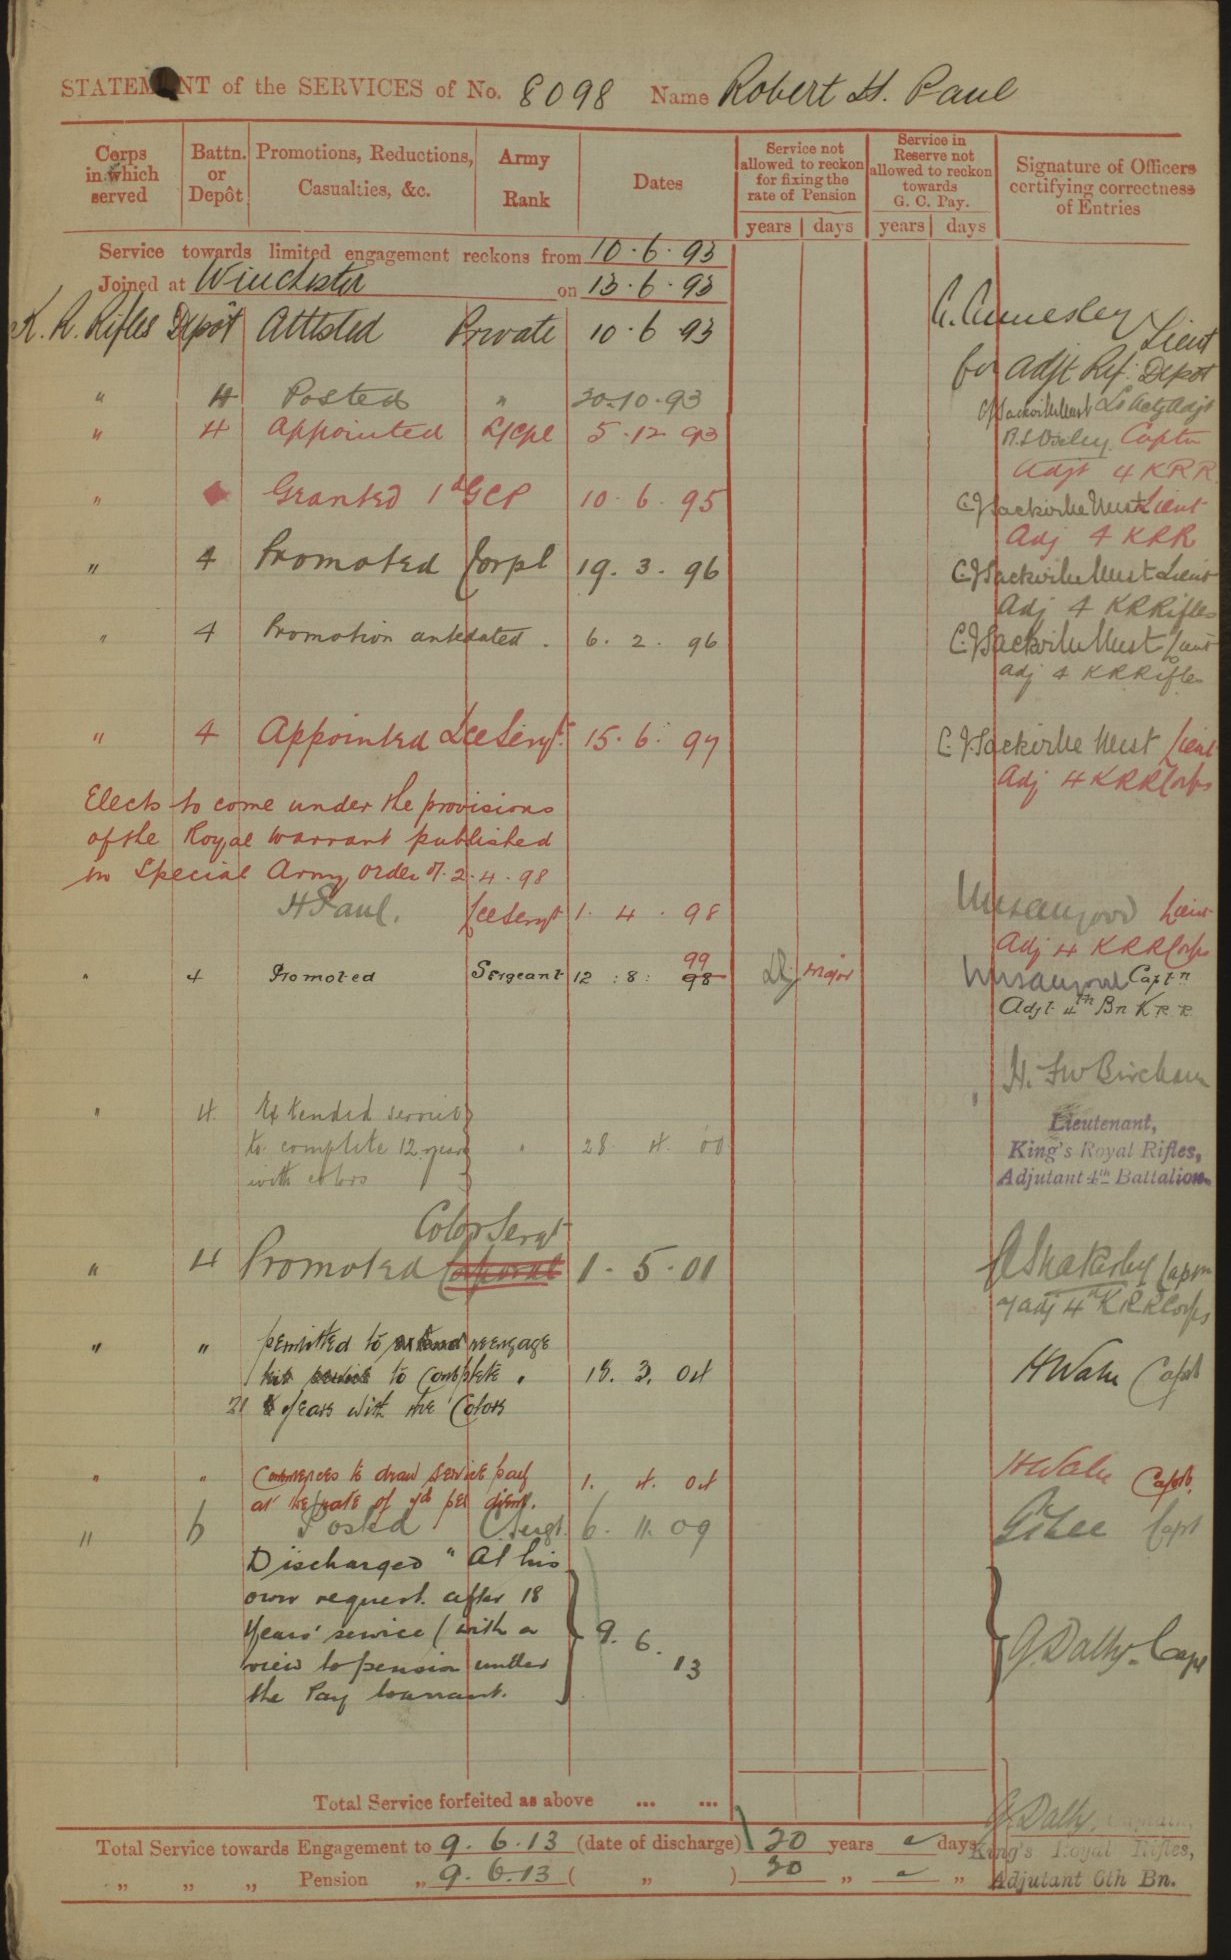 STATEMENT of the SERVICES of No. 8098 Name Robert H. Paul
Corps in which served
Battn. or Depôt
Promotions, Reductions, Casualties, &c.
Army Rank
Dates
Service not allowed to reckon for fixing the rate of Pension
Service in Reserve not allowed to reckon towards G. C. Pay.
Signature of Officers certifying correctness of Entries
years days years days
Service towards limited engagement reckons from 10.6.93
Joined at Winchester on 13.6.93
K. R. Rifles Depôt Attested Private 10.6.93 Lieut
for Adjt Rif: Depôt
" 4 Posted " 20.10.93 C J Sackville West Lt Actg Adjt
" 4 Appointed L/Cpl 5.12.93 Captn
Adjt 4 KRR
" Granted 1st GCP 10.6.95 C. J Sackville West Lieut
Adj 4 KRR
" 4 Promoted Corpl 19.3.96 C. J Sackville West Lieut
Adj 4 KRRifles
" 4 Promotion antedated. 6.2.96 C. J Sackville West Lieut
adj 4 KRRifles
" 4 Appointed Lce Sergt. 15.6.97 C. J. Sackville West Lieut
Adj 4 KRRCorps
Elects to come under the provisions
of the Royal Warrant published
in Special Army Order of 2.4.98
H Paul. Lce Sergt 1.4.98 Lieut
Adj 4 KRRCorps
" 4 Promoted Sergeant 12:8: 98 99 Major Captn
Adjt 4th Bn KRR
H. F W Bircham
" 4 Extended service
to complete 12 years " 28 4 00
with colors
Lieutenant,
King's Royal Rifles,
Adjutant 4th Battalion.
Color Sergt
" 4 Promoted Corporal 1.5.01 Captn
adj 4th KRRCorps
" " permitted to extend reengage
his service to complete " 18.3.04 Capt
21 years with the Colors
" " Commences to draw service pay 1.4.04 Capt.
at the rate of 7d per diem.
" 6 Posted C. Sergt. 6.11.09 Capt
Discharged "At his
own request after 18
years' service (with a 9.6.13 G. Dalby. Capt
view to pension under
the Pay Warrant.
Total Service forfeited as above ... ...
G. Dalby, Captain,
Total Service towards Engagement to 9.6.13 (date of discharge) 20 years — days
King's Royal Rifles,
" " " Pension " 9.6.13 ( " ) 20 " — "
Adjutant 6th Bn.